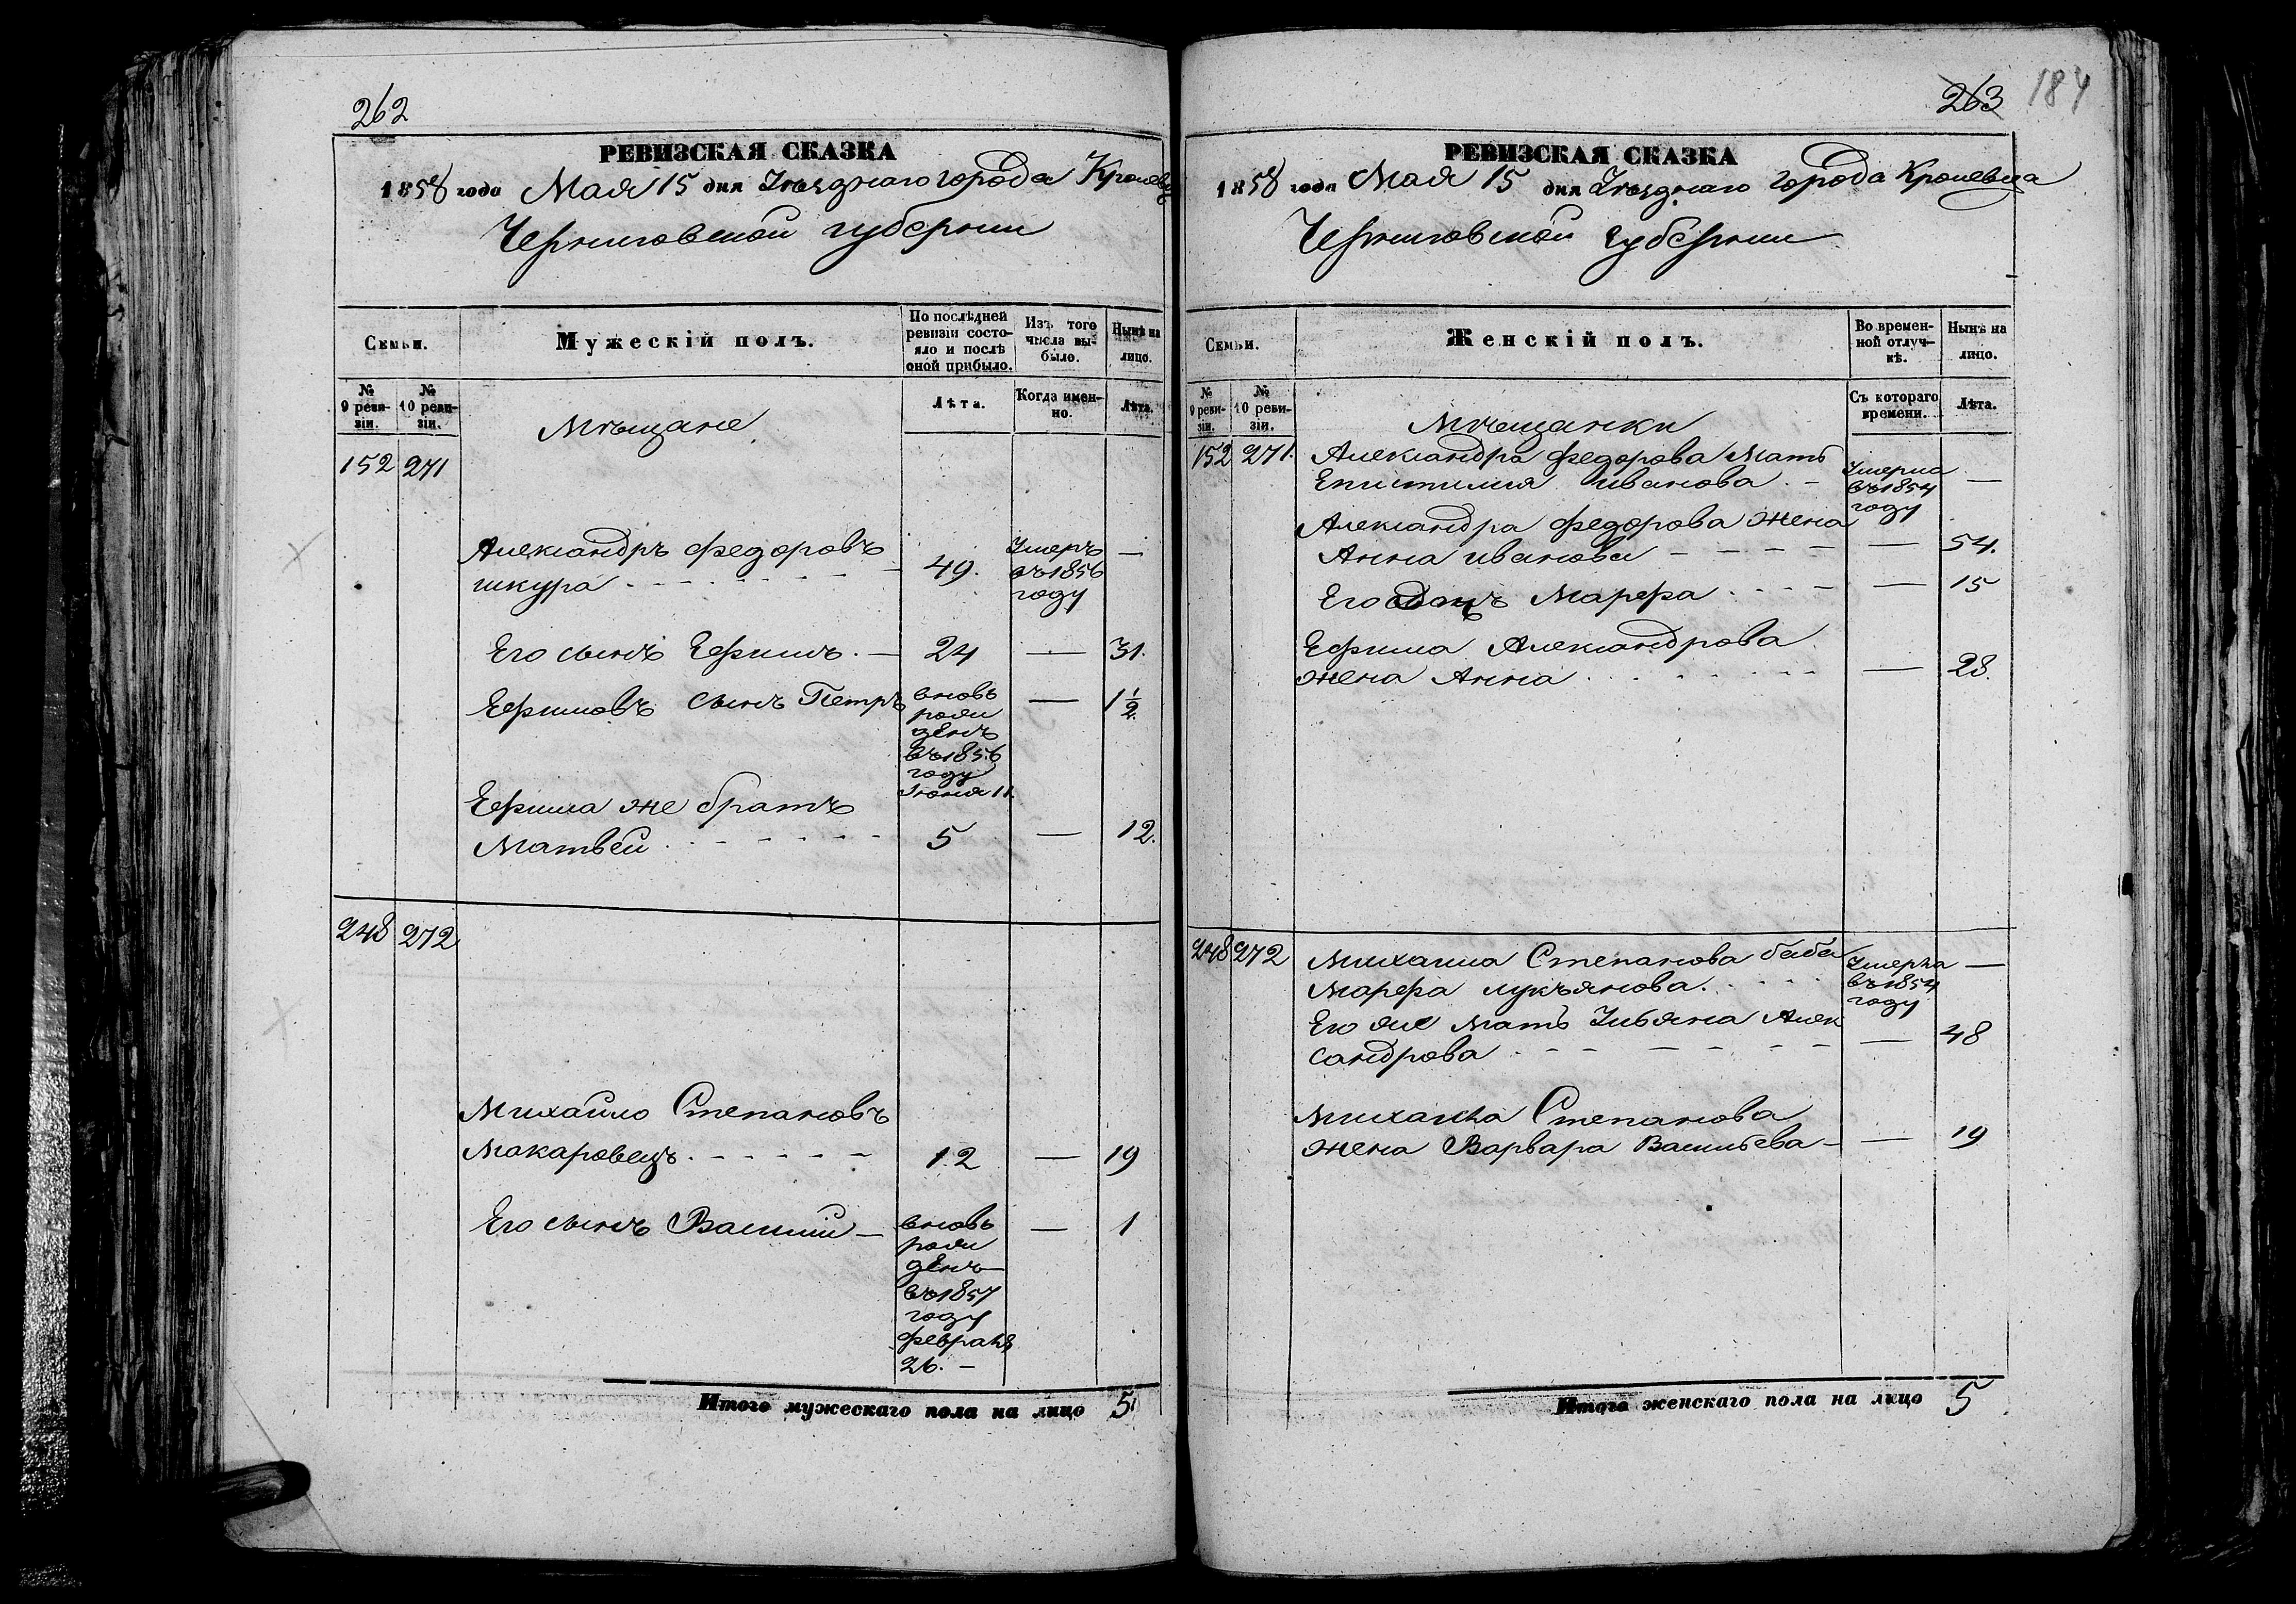 262
РЕВИЗСКАЯ СКАЗКА
1858 года Мая 15 дня Уѣзднаго города Кролевц
Черниговской губерніи
Семьи.
Мужескій полъ.
По послѣдней ревизіи состояло и послѣ оной прибыло.
Изъ того числа выбыло.
Нынѣ на лицо.
№ 9 ревизіи.
№ 10 ревизіи.
Лѣта.
Когда именно.
Лѣта.
Мѣщане
152 271
Александръ Федоровъ
шкура 49. Умеръ въ 1856 году —
Его сынъ Ефимъ. — 24 — 31.
Ефимовъ сынъ Петръ вновь рожденъ въ 1856 году Іюня 11. — 1 1/2
Ефима же братъ
Матвей 5 — 12.
248 272
Михайло Степановъ
Макаровецъ 12 — 19
Его сынъ Василий — вновь рожденъ въ 1857 году февраля 26. — — 1
Итого мужескаго пола на лицо 5
263 184
РЕВИЗСКАЯ СКАЗКА
1858 года Мая 15 дня Уѣзднаго города Кролевца
Черниговской Губерніи
Семьи.
Женскій полъ.
Во временной отлучкѣ.
Нынѣ на лицо.
№ 9 ревизіи.
№ 10 ревизіи.
Съ котораго времени.
Лѣта.
Мѣщанки
152 271. Александра Федорова Мать
Епистимия Иванова. — Умерла въ 1854 году —
Александра Федорова жена
Анна Иванова — 54.
Его дочь Марфа — 15
Ефима Александрова
жена Анна — 28.
248 272 Михаила Степанова баба
Марфа лукъянова. Умерла въ 1854 году —
Его же Мать Ульяна Алек
сандрова — 48
Михаила Степанова
жена Варвара Васильева — — 19
Итого женскаго пола на лицо 5